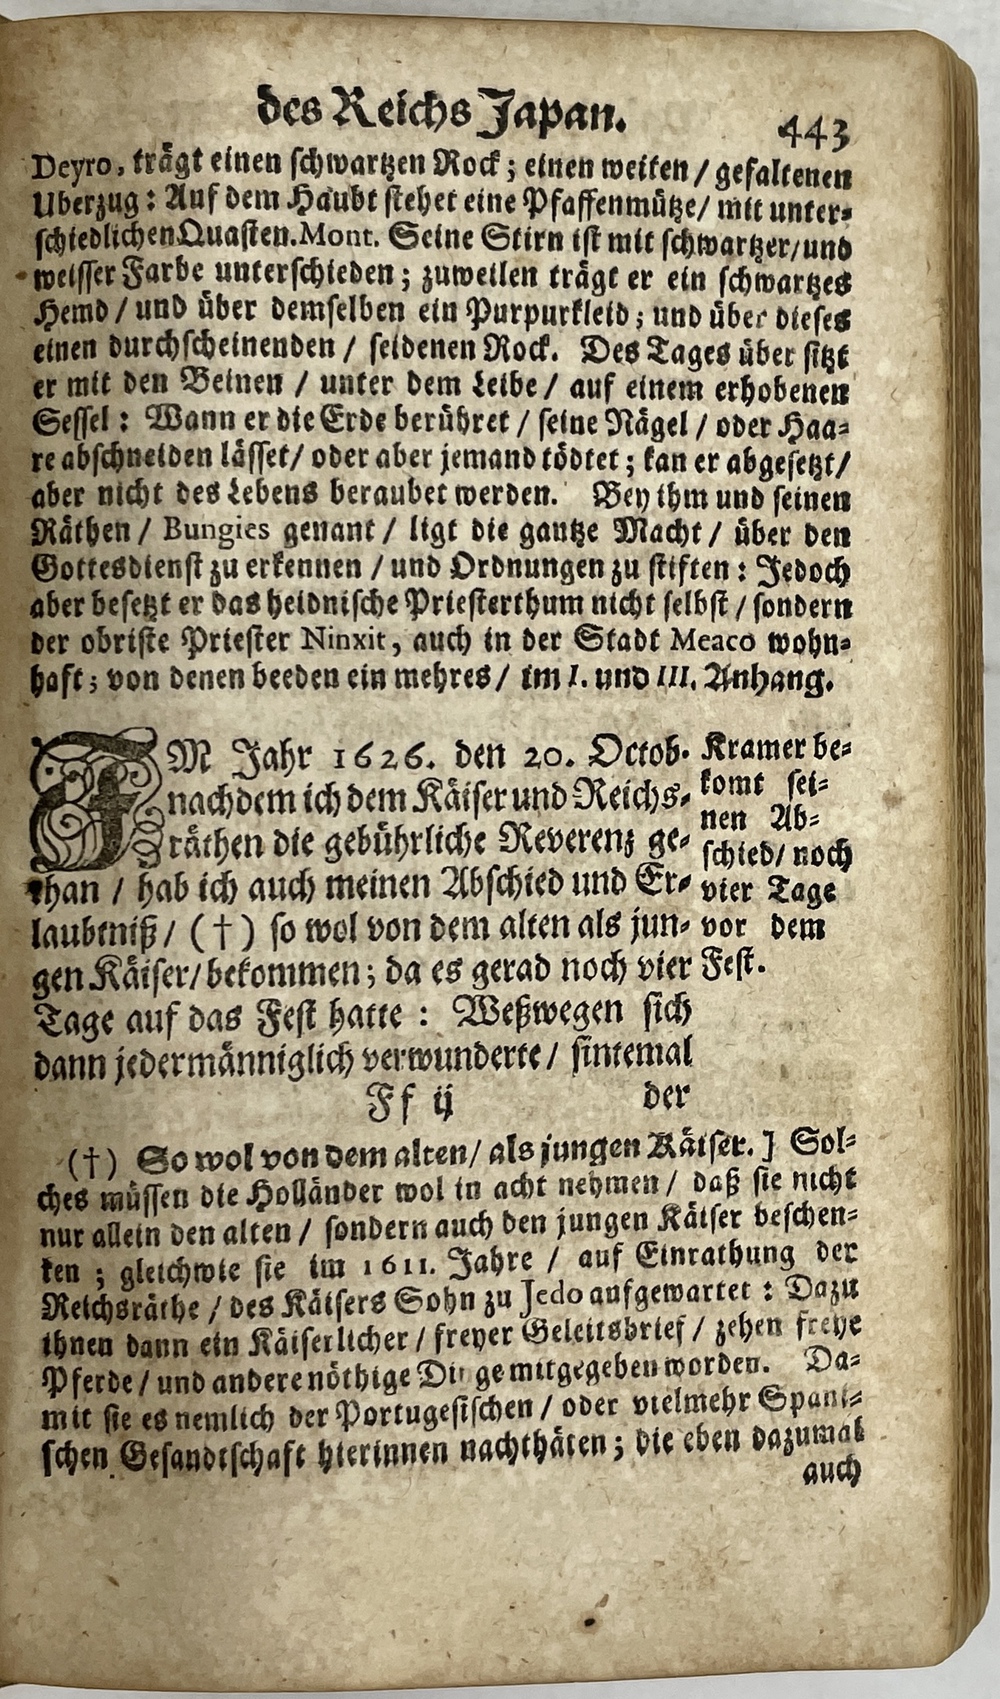 des Reichs Japan.
443
Deyro, trägt einen schwartzen Rock; einen weiten / gefaltenen
Uberzug: Auf dem Haubt stehet eine Pfaffenmütze/ mit unter-
schiedlichen Quasten. Mont. Seine Stirn ist mit schwartzer/und
weisser Farbe unterschieden; zuweilen trägt er ein schwartzes
Hemd / und über demselben ein Purpurkleid; und über dieses
einen durchscheinenden / seidenen Rock. Des Tages über sitzt
er mit den Beinen / unter dem Leibe / auf einem erhobenen
Sessel: Wann er die Erde berühret / seine Nägel / oder Haa-
re abschneiden lässet/ oder aber jemand tödtet; kan er abgesetzt/
aber nicht des Lebens beraubet werden. Bey ihm und seinen
Räthen / Bungies genant / ligt die gantze Macht / über den
Gottesdienst zu erkennen / und Ordnungen zu stiften: Jedoch
aber besetzt er das heidnische Priesterthum nicht selbst / sondern
der obriste Priester Ninxit, auch in der Stadt Meaco wohn-
haft; von denen beeden ein mehres / im I. und III. Anhang.
IM Jahr 1626. den 20. Octob.
nachdem ich dem Käiser und Reichs-
räthen die gebührliche Reverenz ge-
than / hab ich auch meinen Abschied und Er-
laubtniß / (†) so wol von dem alten als jun-
gen Käiser/bekommen; da es gerad noch vier
Tage auf das Fest hatte: Weßwegen sich
dann jedermänniglich verwunderte / sintemal
Kramer be-
komt sei-
nen Ab-
schied/ noch
vier Tage
vor dem
Fest.
Ff ij der
(†) So wol von dem alten/ als jungen Käiser.] Sol-
ches müssen die Holländer wol in acht nehmen / daß sie nicht
nur allein den alten / sondern auch den jungen Käiser beschen-
ken; gleichwie sie im 1611. Jahre / auf Einrathung der
Reichsräthe / des Käisers Sohn zu Jedo aufgewartet: Dazu
ihnen dann ein Käiserlicher / freyer Geleitsbrief / zehen freye
Pferde / und andere nöthige Dinge mitgegeben worden. Da-
mit sie es nemlich der Portugesischen / oder vielmehr Spani-
schen Gesandtschaft hierinnen nachthäten; die eben dazumal
auch